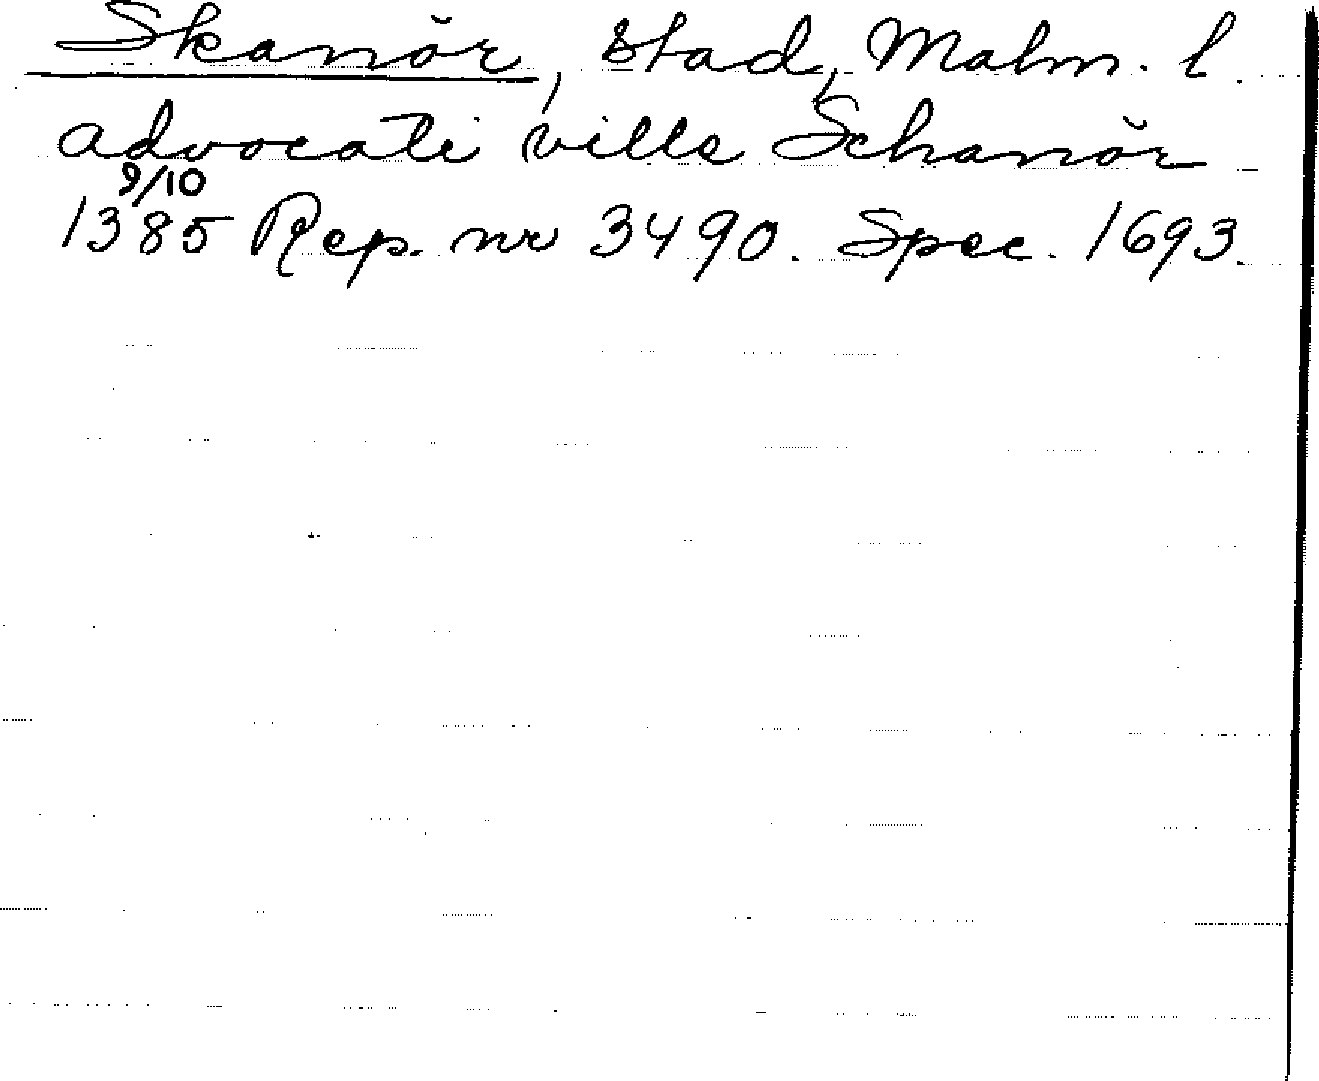 Skanör, stad, Malm. l.
advocati ville Schanör
9/10
1385 Rep. nr 3490. Spec. 1693.